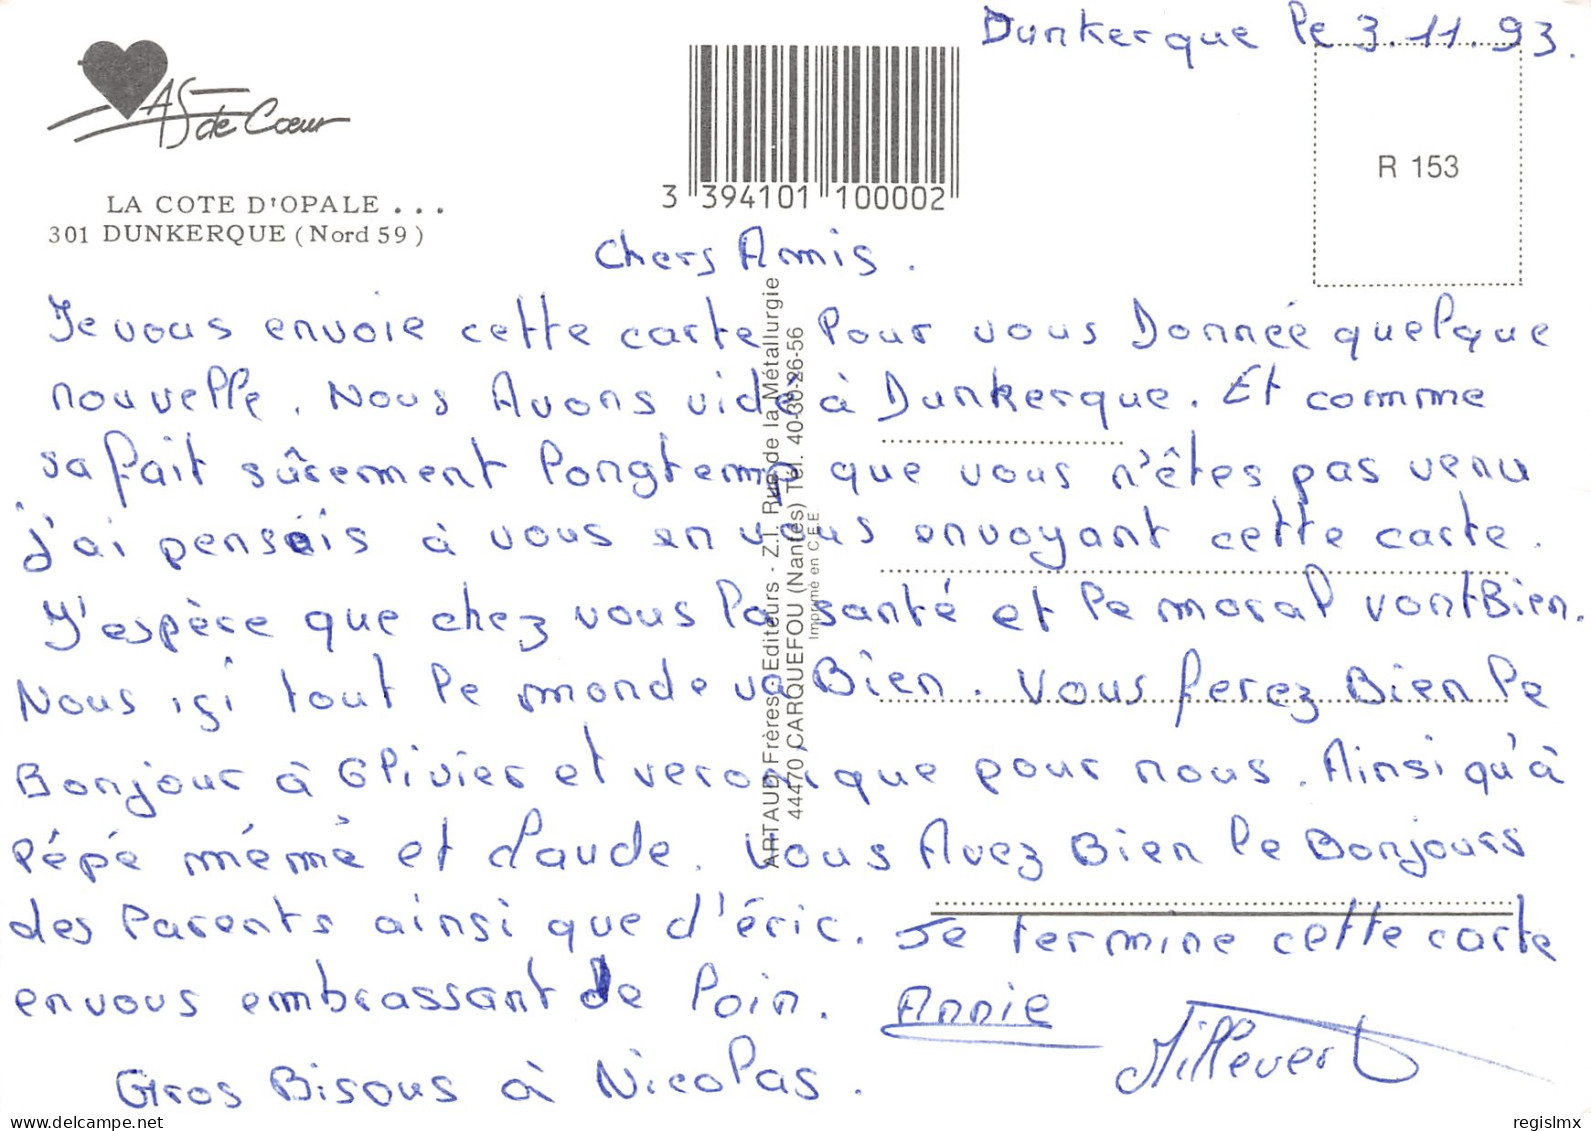 Dunkerque le 3.11.93.
AS de Cœur
R 153
3 394101 100002
LA COTE D'OPALE . . .
301 DUNKERQUE (Nord 59)
Chers Amis.
Je vous envoie cette carte pour vous Donnée quelque
nouvelle. Nous Avons vidé à Dunkerque. Et comme
sa fait sûrement longtemp que vous n'êtes pas venu
j'ai penseis à vous en vous envoyant cette carte.
J'espère que chez vous la santé et le moral vont Bien.
Nous içi tout le monde va Bien. Vous ferez Bien le
Bonjour à Olivier et veronique pour nous. Ainsi qu'à
pépé mémé et claude. Vous Avez Bien le Bonjours
des Parents ainsi que d'éric. Je termine cette carte
en vous embrassant de loin. Annie
Gros Bisous à Nicolas.
ARTAUD Frères-Editeurs - Z.I. Rue de la Métallurgie
44470 CARQUEFOU (Nantes) Tél. 40-30-26-56
Imprimé en C.E.E.
regislmx